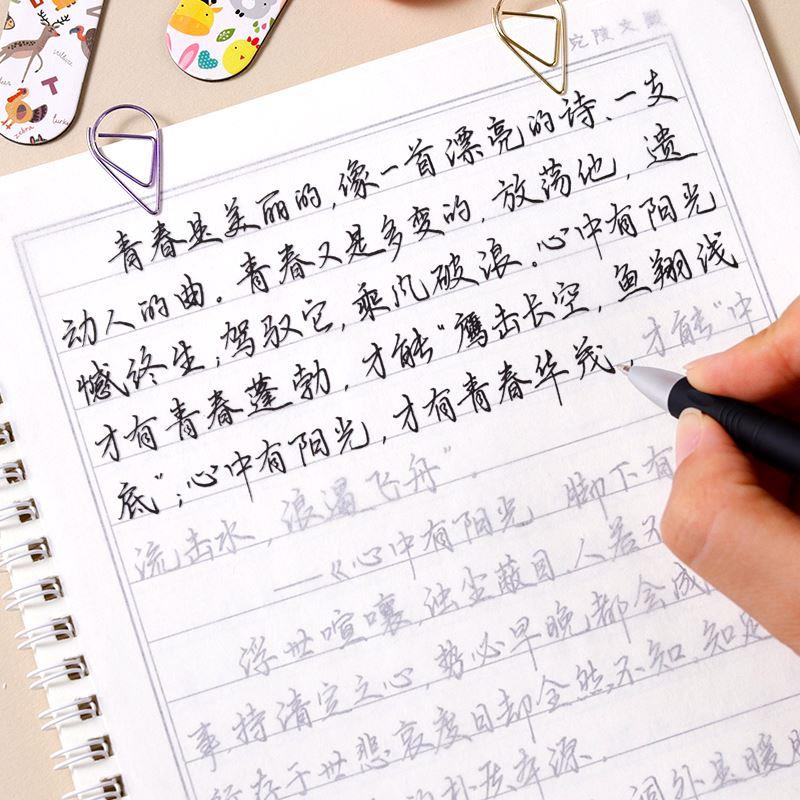 宛陵文
青春是美丽的,像一首漂亮的诗、一支
动人的曲。青春又是多变的,放荡他,遗
憾终生;驾驭它,乘风破浪。心中有阳光
才有青春蓬勃,才能"鹰击长空,鱼翔浅
底";心中有阳光,才有青春华茂,才能"中
流击水,浪遏飞舟"。
——《心中有阳光 脚下有
浮世喧嚷,浊尘蔽目,人若不
事,持清定之心,势必早晚都会成
存于世悲哀度日却全然不知,知
的朴质本源。
外是暖
zebra